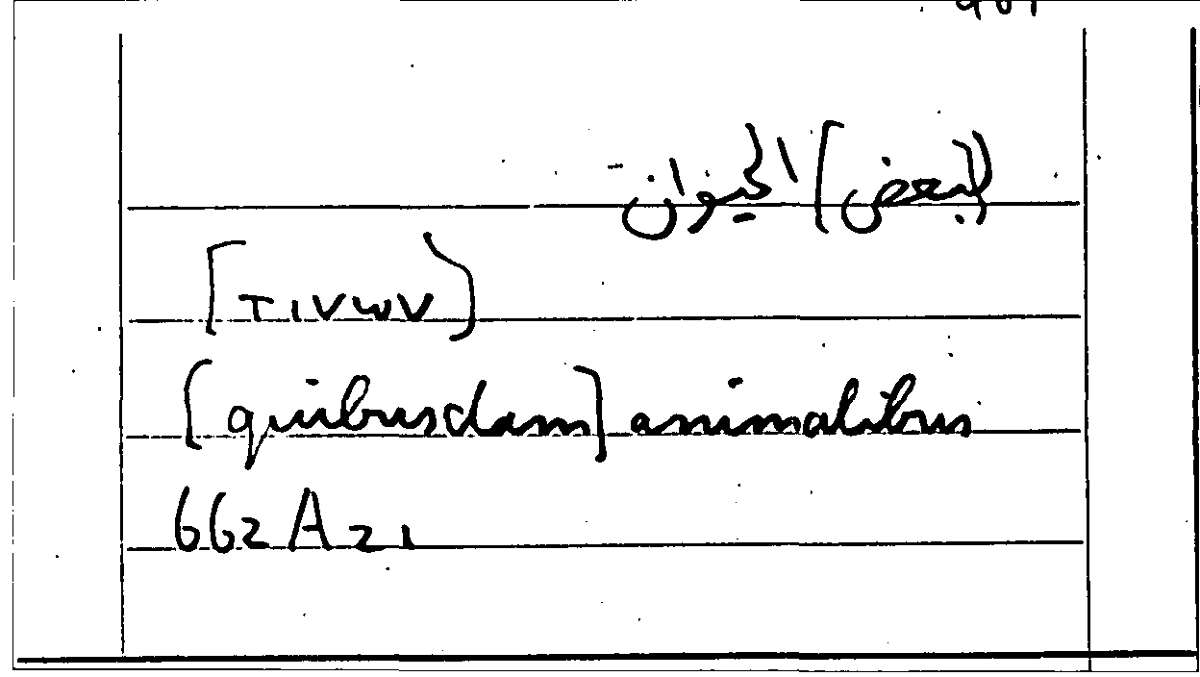 [لبعض] الحيوان
[τινων]
[quibusdam] animalibus
662 A 21